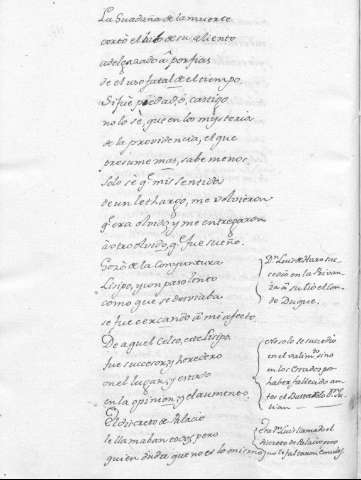 La Guadaña de la muerte
cortò el hilo de su aliento
adelgazado â porfias
de el uso fatal de el tiempo.
Si fuè piedad, ò, castigo
no lo sè, que en los mysterios
de la providencia, el que
presume mas, sabe menos.
Solo sè q.e mis sentidos
de un lethargo, me volvieron
q.e era olvido, y me entregaron
à otro olvido, q.e fue sueño.
Gozò de la Conjuntura
Lisipo, y con passo lento
como que se desviaba
se fue acercando â mi afecto.
De aquel Celio, este Lisipo
fue successor, y heredero
en el lugar, y
en la opinion, y el aumento.
El discreto de Palacio
le llamaban todos, pero
quien duda que no es lo mismo
D.n Luis de Haro suc
cediò en la Privan
za â su tio el Con
de Duque.
no solo se sucediò
en el valim.to sino
en los Estados por
haber fallecido an
tes el